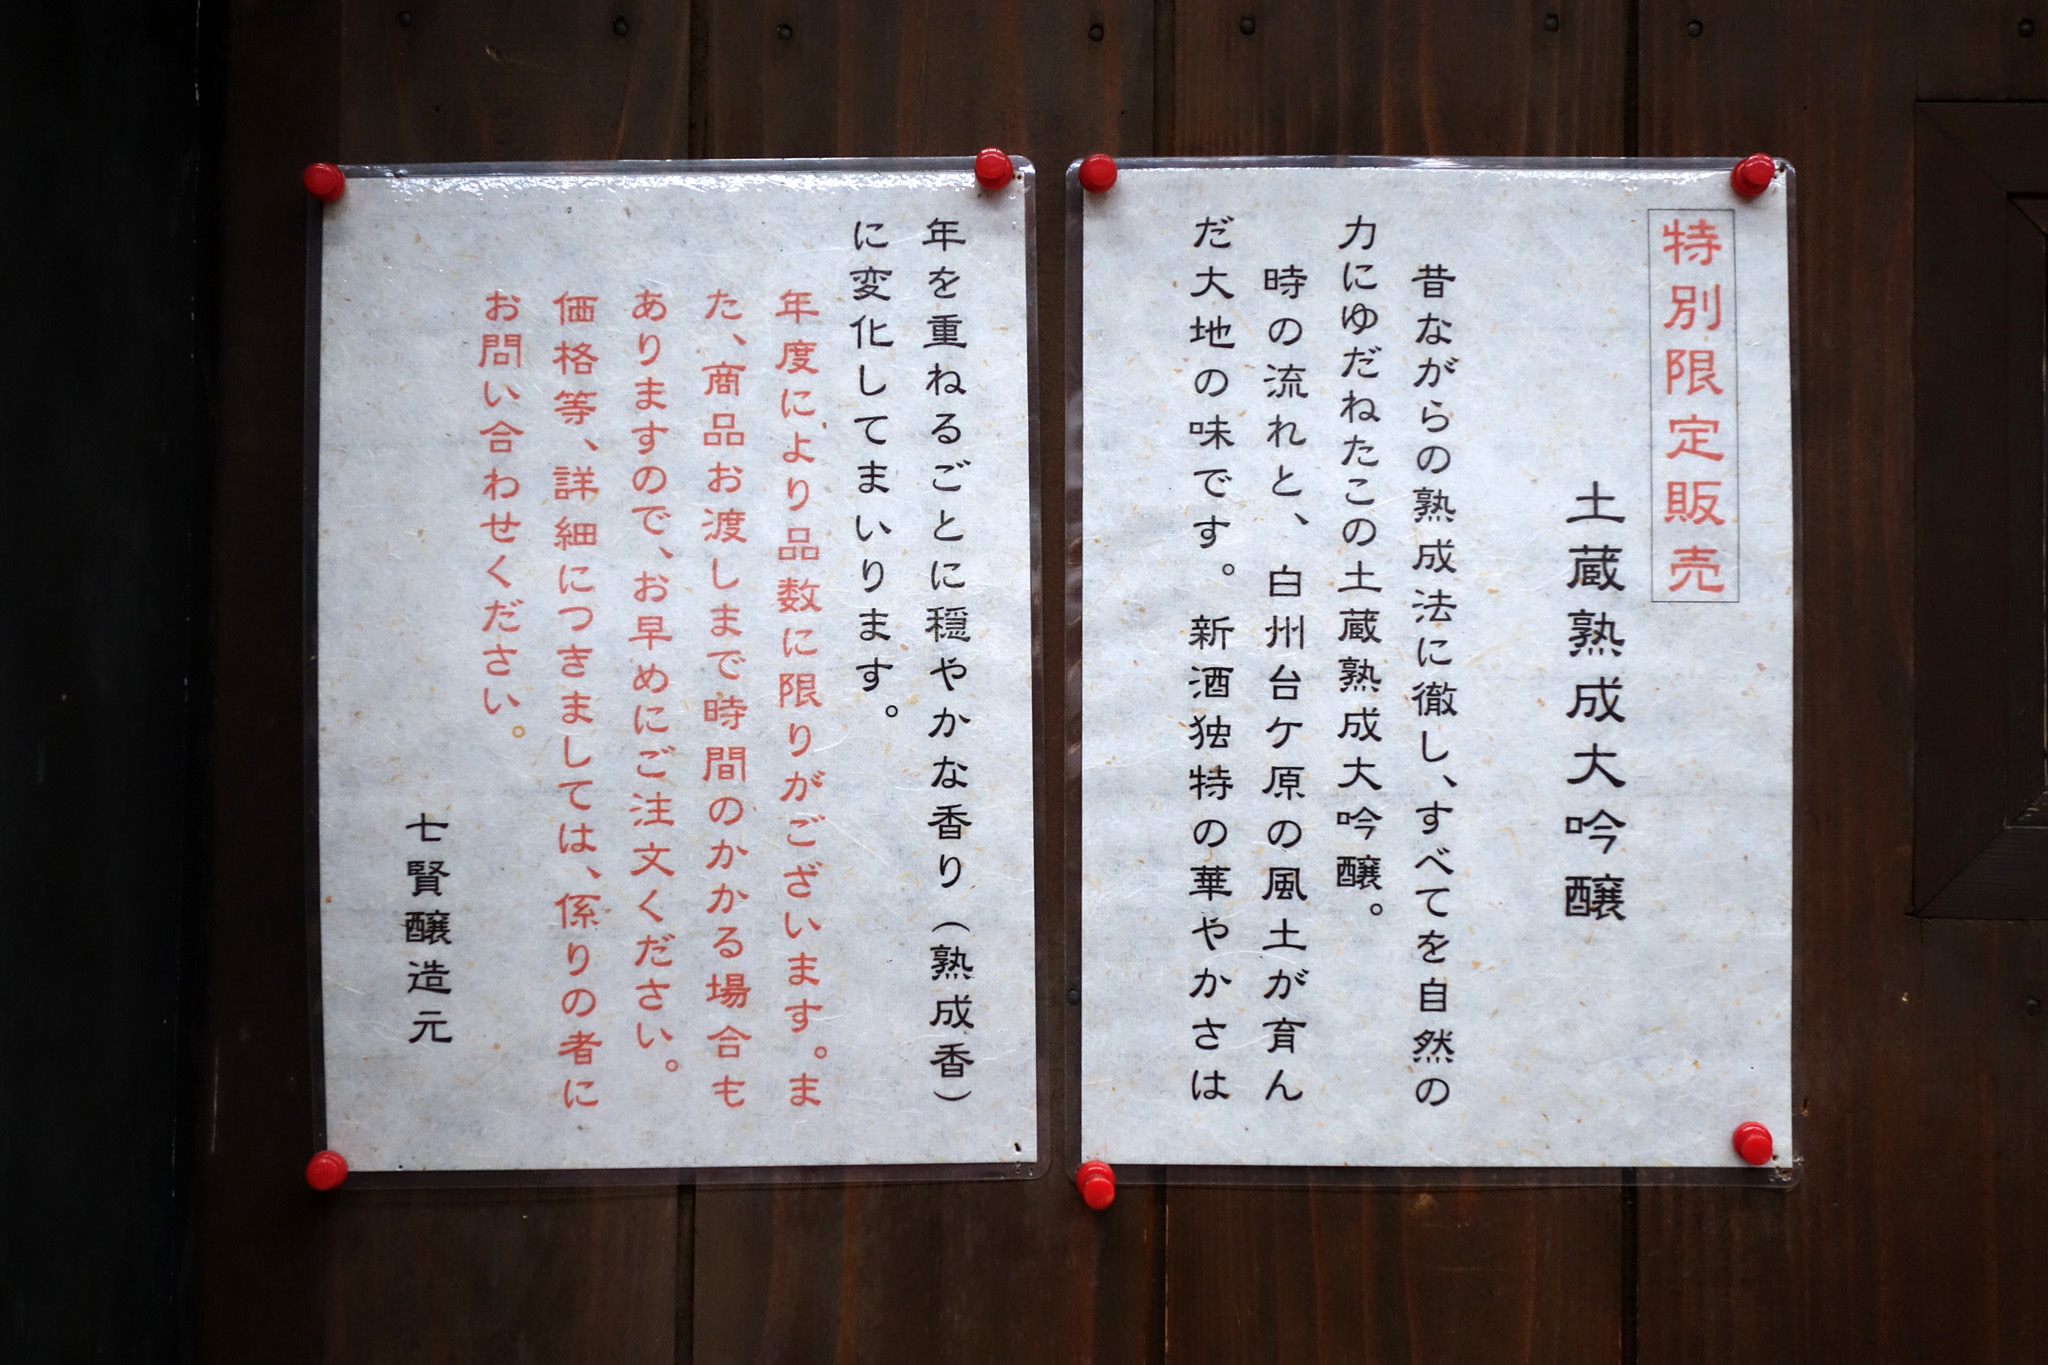 特別限定販売
土蔵熟成大吟醸
昔ながらの熟成法に徹し、すべてを自然の
力にゆだねたこの土蔵熟成大吟醸。
時の流れと、白州台ケ原の風土が育ん
だ大地の味です。新酒独特の華やかさは
年を重ねるごとに穏やかな香り（熟成香）
に変化してまいります。
年度により品数に限りがございます。ま
た、商品お渡しまで時間のかかる場合も
ありますので、お早めにご注文ください。
価格等、詳細につきましては、係りの者に
お問い合わせください。
七賢醸造元